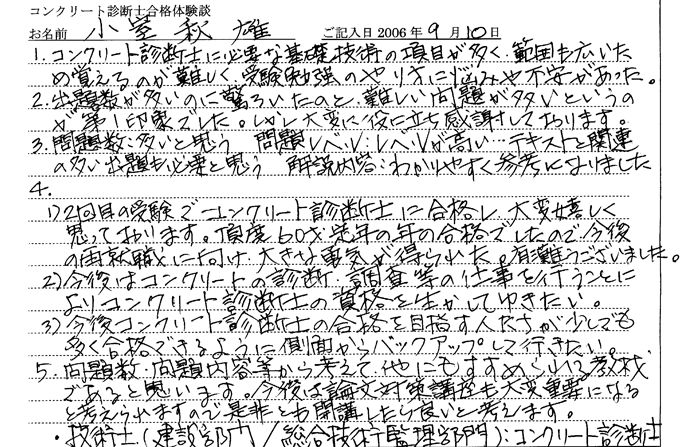 コンクリート診断士合格体験談
お名前 小室秋雄 ご記入日 2006 年 9 月 10 日
1. コンクリート診断士に必要な基礎技術の項目が多く、範囲も広いた
め覚えるのが難しく、受験勉強のやり方に悩みや不安があった。
2. 出題数が多いのに驚ろいたのと、難しい問題が多いというの
が第1印象でした。しかし大変に役に立ち感謝しております。
3. 問題数:多いと思う 問題レベル:レベルが高い…テキストと関連
の多い出題も必要と思う 解説内容:わかりやすく参考になりました
4.
1) 2回目の受験でコンクリート診断士に合格し、大変嬉しく
思っております。頂度60才定年の年の合格でしたので今後
の再就職に向け、大きな勇気が得られた。有難うございました。
2) 今後はコンクリートの診断、調査等の仕事を行うことに
よりコンクリート診断士の資格を生かしてゆきたい。
3) 今後コンクリート診断士の合格を目指す人たちが少しでも
多く合格できるように側面からバックアップして行きたい。
5. 問題数、問題内容等から考えて、他にもすすめられる教材
であると思います。今後は論文対策講座も大変重要になる
と考えられますので、是非とも開講したら良いと考えます。
・技術士(建設部門/総合技術監理部門):コンクリート診断士